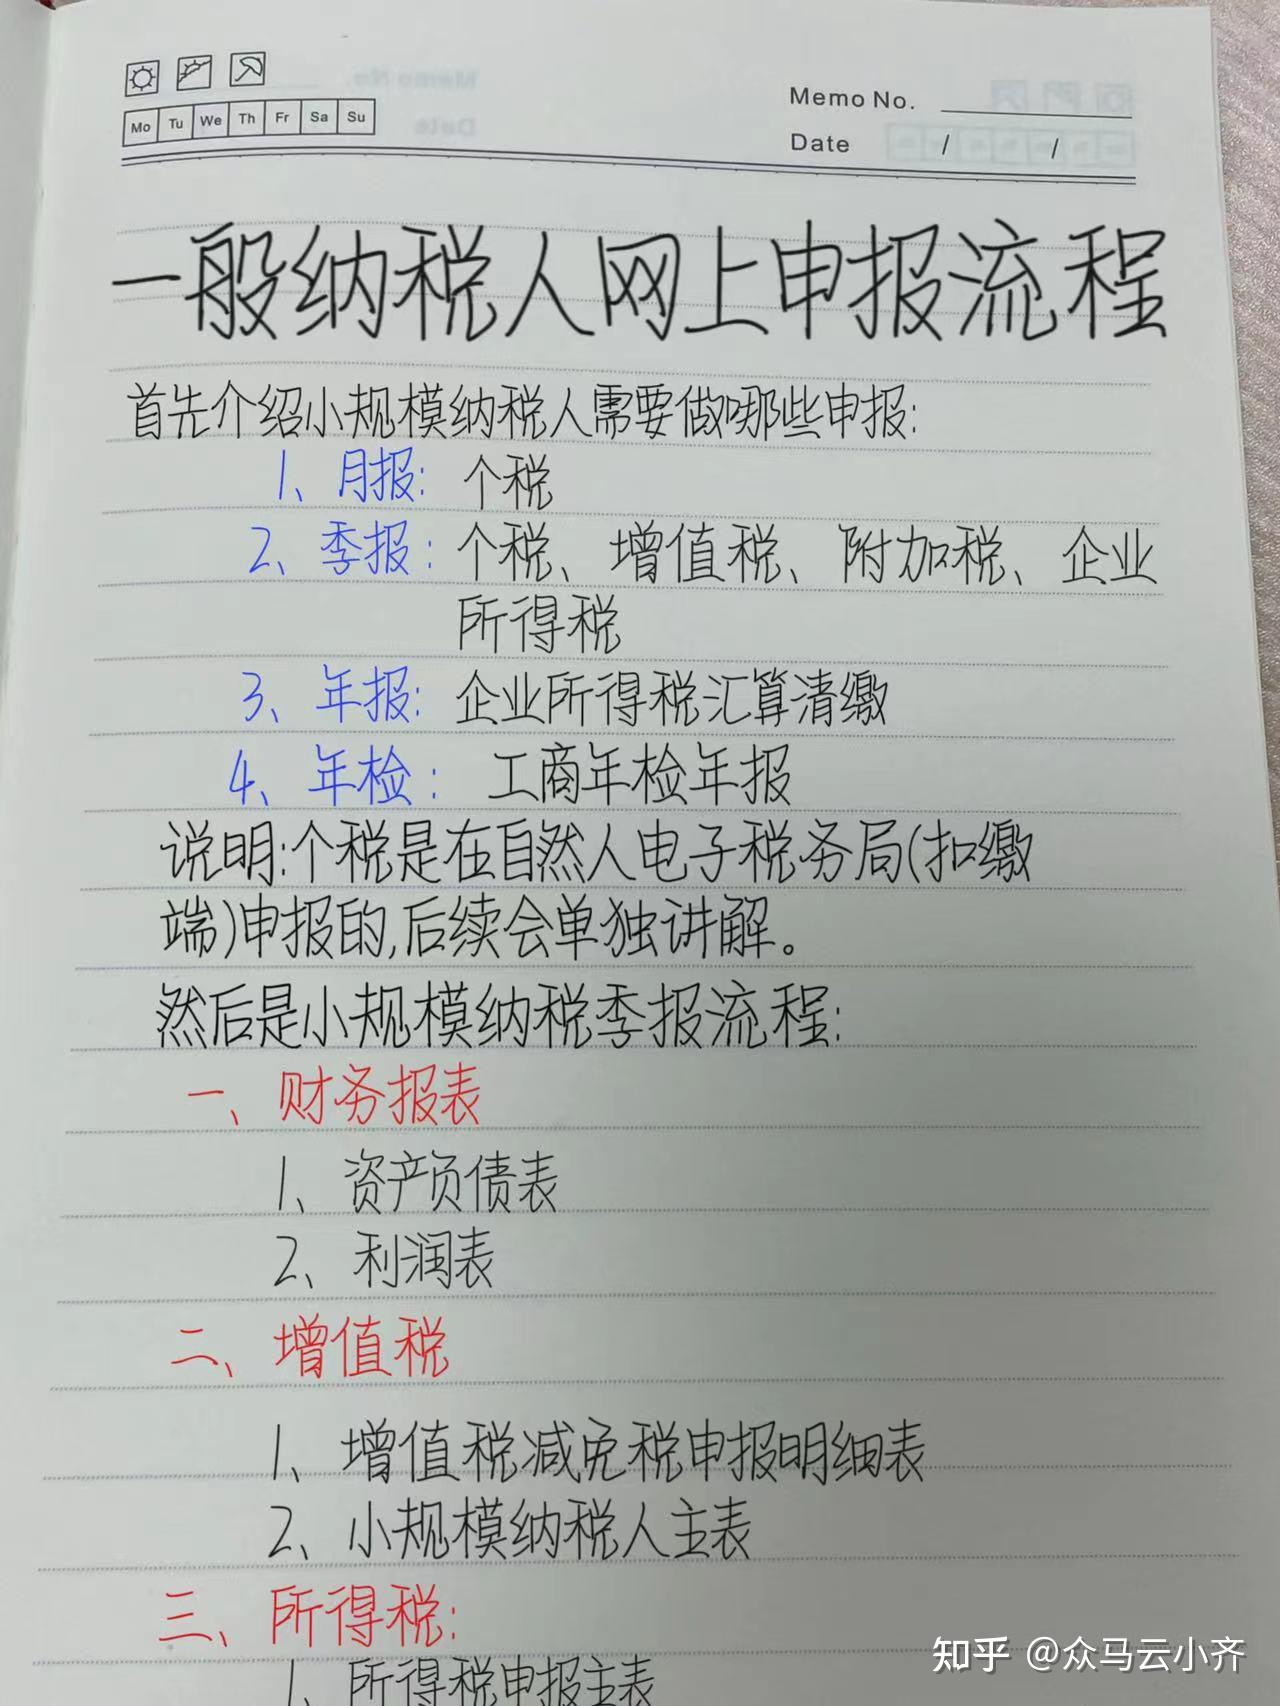 Memo No.
Mo Tu We Th Fr Sa Su
Date / /
一般纳税人网上申报流程
首先介绍小规模纳税人需要做哪些申报:
1、月报: 个税
2、季报: 个税、增值税、附加税、企业
所得税
3、年报: 企业所得税汇算清缴
4、年检: 工商年检年报
说明:个税是在自然人电子税务局(扣缴
端)申报的,后续会单独讲解。
然后是小规模纳税季报流程:
一、财务报表
1、资产负债表
2、利润表
二、增值税
1、增值税减免税申报明细表
2、小规模纳税人主表
三、所得税:
1、所得税申报主表
知乎 @众马云小齐